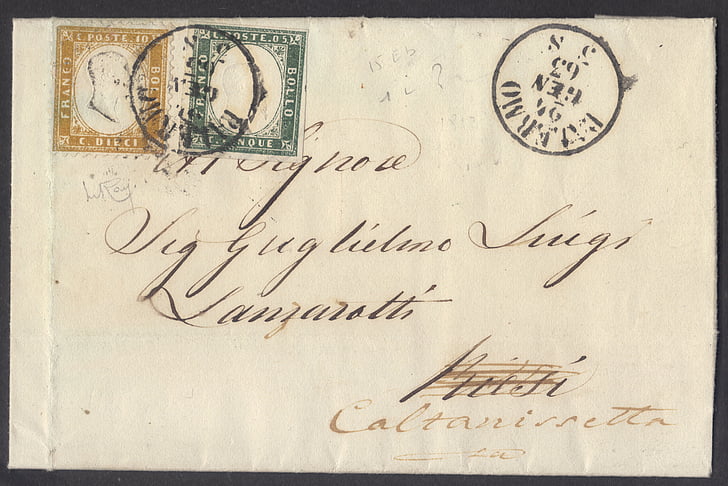 C. POSTE. 10.
FRANCO
BOLLO
C. DIECI
C. POSTE. 05.
FRANCO
BOLLO
C. CINQUE
PALERMO
GEN
63
PALERMO
GEN
63
5 S
15 Eb
Al Signore
Sig Guglielmo Luigi
Lanzarotti
Riesi
Caltanissetta